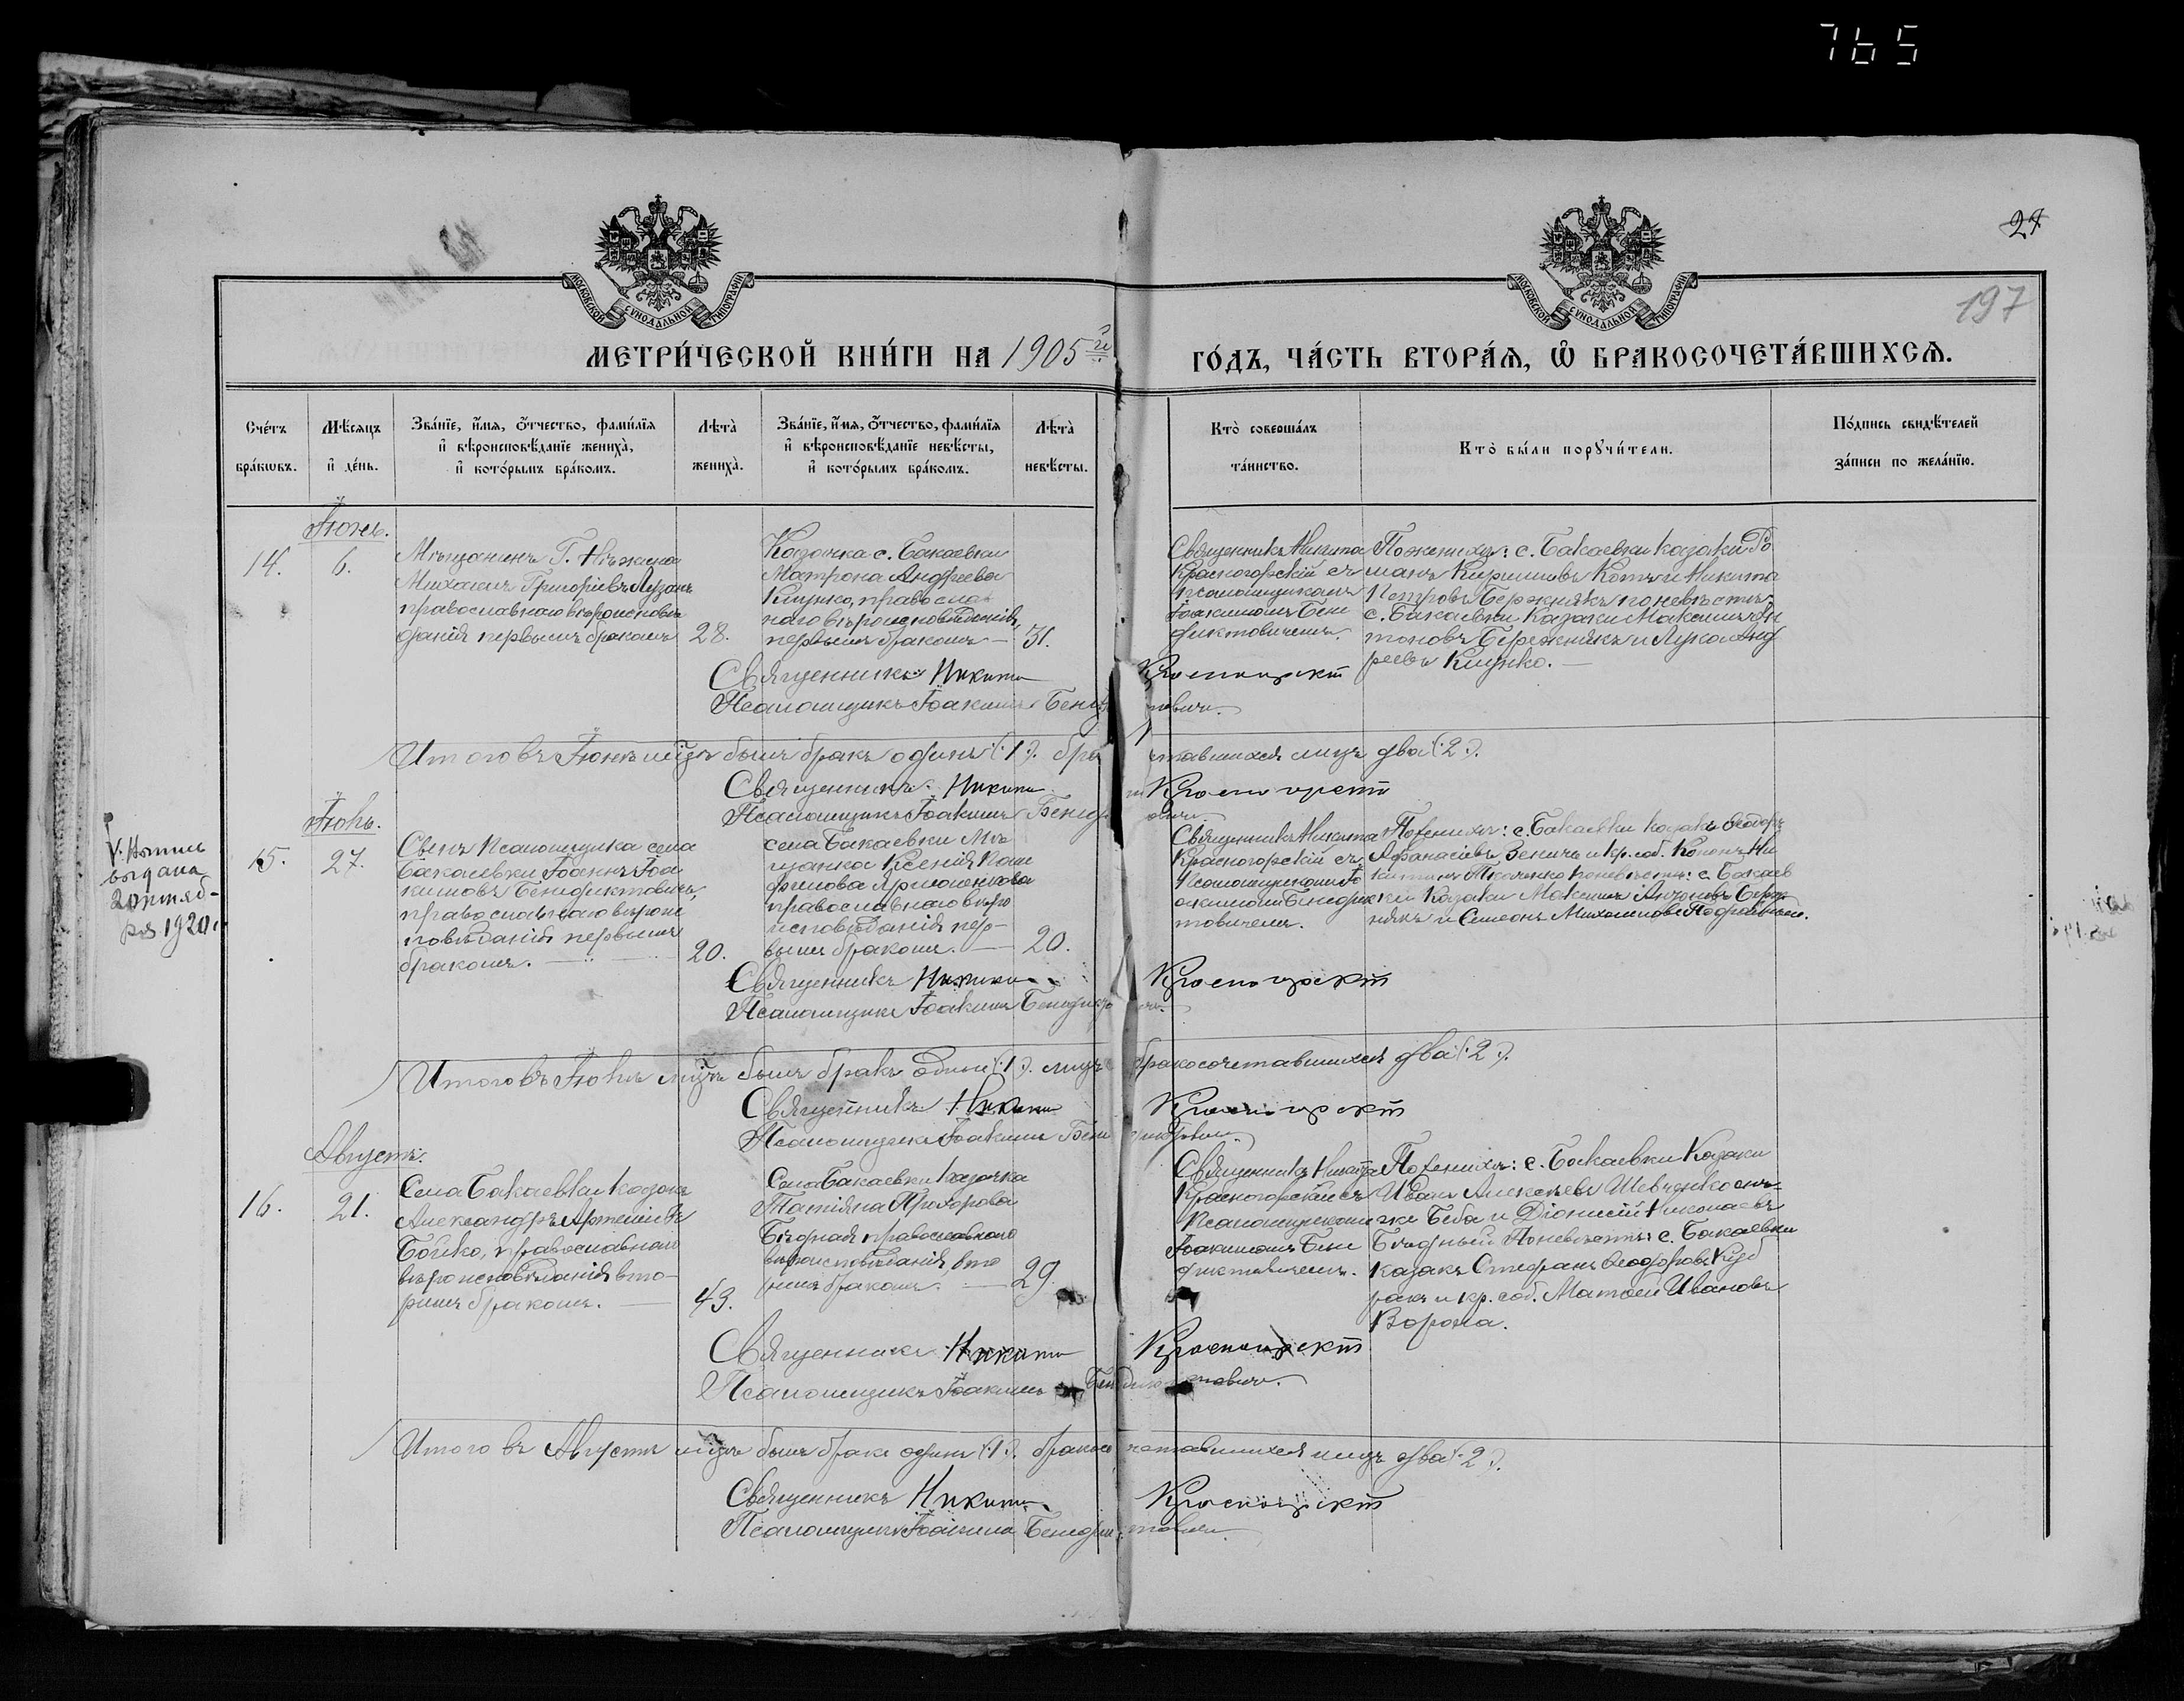 765
27
197
МОСКОВСКОЙ СѴНОДАЛЬНОЙ ТИПОГРАФІИ
МОСКОВСКОЙ СѴНОДАЛЬНОЙ ТИПОГРАФІИ
МЕТРИ́ЧЕСКОЙ КНИ́ГИ НА 1905й ГО́ДЪ, ЧА́СТЬ ВТОРА́Я, Ѡ БРАКОСОЧЕТА́ВШИХСЯ.
Сче́тъ бра́кωвъ.
Мѣ́сяцъ и де́нь.
Зва́нїе, и́мя, о́тчество, фами́лїя и вѣроисповѣ́данїе жениха̀, и кото́рымъ бра́комъ.
Лѣта̀ жениха̀.
Зва́нїе, и́мя, о́тчество, фами́лїя и вѣроисповѣ́данїе невѣ́сты, и кото́рымъ бра́комъ.
Лѣта̀ невѣ́сты.
Кто̀ соверша́лъ та́инство.
Кто̀ бы́ли порꙋчи́тели.
По́дпись свидѣ́телей за́писи по жела́нїю.
Іюнь.
14.
6.
Мѣщанинъ Г. Нѣжина
Михаилъ Григоріевъ Лузанъ
православнаго вѣроисповѣ
данія первымъ бракомъ
28.
Казачка с. Бакаевки
Матрона Андреева
Клунко, правосла
наго вѣроисповѣданія,
первымъ бракомъ
31.
Священникъ Никита
Красногорскій съ
псаломщикомъ
Іоакимомъ Бене
диктовичемъ.
По женихѣ: с. Бакаевки казаки Ро
манъ Кирилловъ Котъ и Никита
Петровъ Бережнякъ по невѣстѣ:
с. Бакаевки Казаки Максимъ Ан
тоновъ Бережнякъ и Лука Анд
реевъ Клунко.
Священникъ Никита Красногорскій
Псаломщикъ Іоакимъ Бенедиктовичъ.
Итого въ Іюнѣ мцѣ былъ бракъ одинъ (:1:). бракосочетавшихся лицъ два (:2:).
Священникъ Никита Красногорскій
Псаломщикъ Іоакимъ Бенедиктовичъ.
Іюль.
V. Копія
выдана
2 октяб-
ря 1920 г.
15.
27.
Сынъ Псаломщика села
Бакаевки Іоаннъ Іоа
кимовъ Бенедиктовичъ,
православнаго вѣроис
повѣданія первымъ
бракомъ.
20.
села Бакаевки Мѣ
щанка Ксенія Пам
филова Ярмоленкова
православнаго вѣро
исповѣданія пер-
вымъ бракомъ.
20.
Священникъ Никита
Красногорскій съ
Псаломщикомъ Іо
акимомъ Бенедик
товичемъ.
По женихѣ: с. Бакаевки казакъ Ѳеодоръ
Афанасіевъ Зеничъ и кр. соб. Кононъ Ни
китинъ Ткаченко по невѣстѣ: с. Бакаев
ки Казаки Максимъ Антоновъ Береж
някъ и Симеонъ Михаиловъ
Священникъ Никита Красногорскій
Псаломщикъ Іоакимъ Бенедиктовичъ.
Итого въ Іюлѣ мцѣ былъ бракъ одинъ (:1:). лицъ бракосочетавшихся два (:2:).
Священникъ Никита Красногорскій
Псаломщикъ Іоакимъ Бенедиктовичъ.
Августъ.
16.
21.
Села Бакаевки казакъ
Александръ Артеміевъ
Бойко, православнаго
вѣроисповѣданія вто-
рымъ бракомъ.
43.
Села Бакаевки казачка
Татіяна Прохорова
Бѣдная православнаго
вѣроисповѣданія, вто
рымъ бракомъ.
29.
Священникъ Никита
Красногорскій съ
Псаломщикомъ
Іоакимомъ Бене
диктовичемъ.
По женихѣ: с. Бакаевки Казаки
Иванъ Алексѣевъ Шевченко онъ-
же Беба и Діонисій Николаевъ
Бѣдный По невѣстѣ: с. Бакаевки
казакъ Стефанъ Ѳеодоровъ Куд
ракъ и кр. соб. Матвей Ивановъ
Ворона.
Священникъ Никита Красногорскій
Псаломщикъ Іоакимъ Бенедиктовичъ.
Итого въ Августѣ мцѣ былъ бракъ одинъ (:1:). бракосочетавшихся лицъ два (:2:).
Священникъ Никита Красногорскій
Псаломщикъ Іоакимъ Бенедиктовичъ.